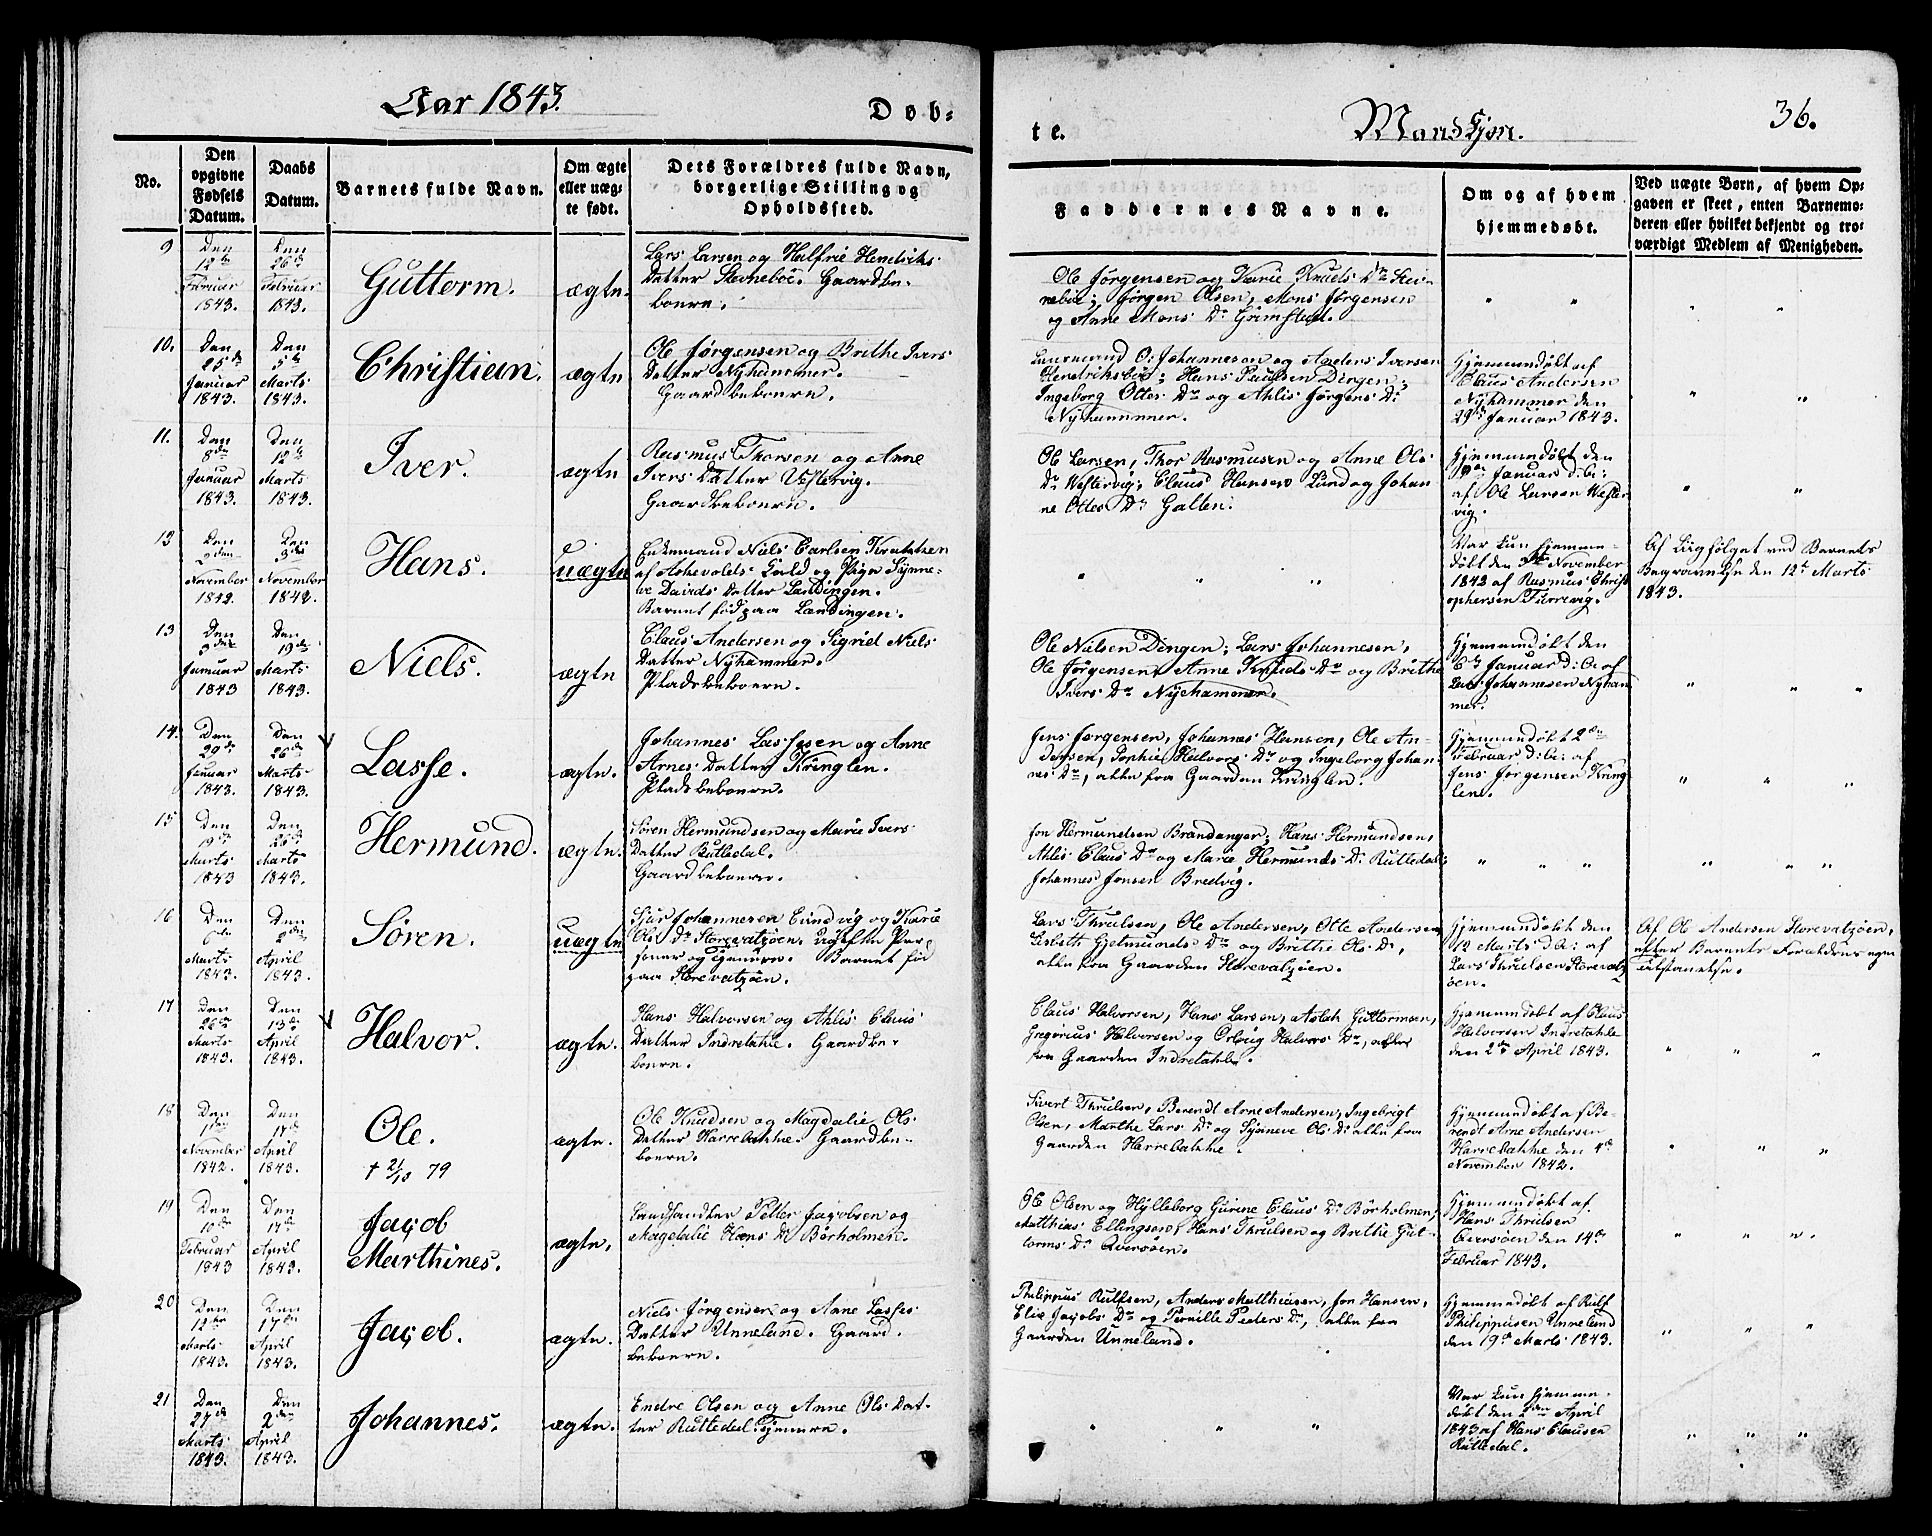 Aar 1843.
Døb-
te.
Mandkjøn.
36.
No.
Den
opgivne
Fødsels
Datum.
Daabs
Datum.
Barnets fulde Navn.
Om ægte
eller uæg-
te født.
Dets Forældres fulde Navn,
borgerlige Stilling og
Opholdssted.
Faddernes Navne.
Om og af hvem
hjemmedøbt.
Ved uægte Børn, af hvem Op-
gaven er skeet, enten Barnemo-
deren eller hvilket bekjendt og tro-
værdigt Medlem af Menigheden.
9
Den
12te
Februar
1843.
Den
26de
Februar
1843.
Guttorm.
ægte.
Lars Larsen og Henriks
Datter Gaardbe-
boere.
Ole Jørgensen og Karie Knuds Dr
Jørgen Olsen, Mons Jørgensen
og Anne Mons Dr Grimstad.
" " " "
10.
Den
25de
Januar
1843.
Den
5te
Marts
1843.
Christian.
ægte
Ole Jørgensen og Brithe Ivers
Datter Nyhammer.
Gaardbeboere.
O: Johannesen og Anders Iversen
Hendriksbøe; Hans Paulsen Dingen;
Ingeborg Ottes Dr og Ahlis Jørgens Dr
Nyhammer.
Hjemmedøbt af
Claus Andersen
Nyhammer den
29de Januar 1843.
" "
11.
Den
8de
Januar
1843.
Den
12te
Marts
1843.
Iver.
ægte
Rasmus Thorsen og Anne
Ivers Datter Vestervig.
Gaardbeboere.
Ole Larsen, Thor Rasmusen og Anne Ols
Dr Westervig; Claus Hansen Lund og Johan-
ne Ottes Dr Galten.
Hjemmedøbt den
Januar d: e:
af Ole Larsen Wester-
vig.
" "
13
Den
November
1842.
Den
3die
November
1842.
Hans.
uægte
Enkemand Niels Carlsen
af Askevolds Guld og Pige Synne-
ve Davids Datter Landingen.
Barnet fød paa Landingen.
" " "
Var kun hjemme-
døbt den November
1842 af Rasmus Christ
ophersen Furrevig.
Af Liigfølget ved Barnets
Begravelse den 12te Marts
1843.
13
Den
3die
Januar
1843
Den
19de
Marts
1843.
Niels.
ægte
Claus Andersen og Sigrid Niels
Datter Nyhammer.
Pladsbeboere.
Ole Nielsen Dingen; Lars Johannesen,
Ole Jørgensen, Anne Knuds Dr og Brithe
Ivers Dr Nyehammer.
Hjemmedøbt den
6te Januar d: e: af
Lars Johannesen Nyham
mer.
" " "
14.
Den
29de
Januar
1843.
Den
26de
Marts
1843.
Lasse.
ægte.
Johannes Lassesen og Anne
Arnes Datter Kringlen.
Pladsbeboere.
Jens Jørgensen, Johannes Hansen, Ole An-
dersen, Sophie Halvors Dr og Ingeborg Johan-
nes Dr, alle fra Gaarden Kringlen.
Hjemmedøbt 2den
Februar d: e: af
Jens Jørgensen Kring
len.
" " "
15
Den
19de
Marts
1843
Den
26de
Marts
1843.
Hermund.
ægte.
Søren Hermundsen og Marie Ivers
Datter Rutledal.
Gaardbeboere.
Jon Hermundsen Brandanger; Hans Hermundsen,
Ahlis Claus Dr og Marie Hermunds Dr Rutledal;
Johannes Jonsen Bredvig.
" " " " " "
16
Den
6te
Marts
1843.
Den
2den
April
1843.
Søren.
uægte
Sjur Johannesen Eundvig og Karie
Ols Dr Storevatzøen, ugifte Per-
soner og Barnet fød
paa Storevatzøen.
Lars Thrulsen, Ole Andersen, Otte Andersen,
Lisbeth Gjetmunds Dr og Brithe Ols Dr,
alle fra Gaarden Storevatzøen.
Hjemmedøbt den
12 Marts d: e: af
Lars Thrulsen Storevatz
øen.
Af Ole Andersen Storevatzøen,
efter Barnets Forældres egen
udstanelse.
17
Den
26de
Marts
1843.
Den
13de
April
1843.
Halvor.
ægte.
Hans Halvorsen og Ahlis Claus
Datter Indretakle. Gaardbe-
boere.
Claus Halvorsen, Hans Larsen, Aslak Guttormsen,
Gregorius Halvorsen og Halvors Dr, alle
fra Gaarden Indretakle.
Hjemmedøbt af Claus
Halvorsen Indretakle
den 2den April 1843.
" " "
18
Den
1ste
November
1842.
Den
17de
April
1843.
Ole.
† 2/10 79
ægte.
Ole Knudsen og Magdalie Ols
Datter Harrebakke. Gaardbe-
boere.
Sivert Thrulsen, Berendt Arne Andersen, Ingebrigt
Olsen, Marthe Lars Dr og Synneve Ols Dr alle fra
Gaarden Harrebakke.
Hjemmedøbt af Be-
rendt Arne Andersen
Harrebakke den 4de
November 1842.
" " "
19
Den
10de
Februar
1843
Den
17de
April
1843.
Jacob
Marthines.
ægte.
Landhandler Petter Jacobsen og
Magdalie Hans Dr Børholmen.
Ole Olsen og Hylleborg Gurine Claus Dr Børholmen,
Matthias Ellingsen, Hans Thrulsen og Brithe Gut-
torms Dr Qversøen.
Hjemmedøbt af
Hans Thrulsen
Qversøen den 14de
Februar 1843.
" " "
20
Den
12te
Marts
1843.
Den
17de
April
1843.
Jacob.
ægte.
Niels Jørgensen og Anne Lasses
Datter Unneland. Gaard-
beboere.
Philippus Rulfsen, Anders Matthiasen, Jon Hansen,
Elie Jacobs Dr og Pernille Peders Dr, alle fra
Gaarden Unneland.
Hjemmedøbt af Rulf
Philippusen Unneland
den 19de Marts 1843.
" " "
21
Den
27de
Marts
1843.
Den
2den
April
1843.
Johannes.
ægte.
Endre Olsen og Anne Ols Dat-
ter Rutledal
" " "
Var kun hjemme-
døbt den 2den April
1843 af Hans Clausen
Rutledal.
" " "